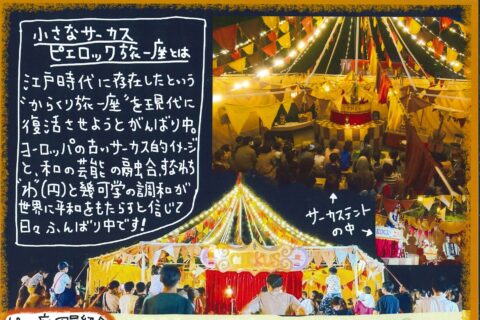 小さなサーカス
ピエロック旅一座とは
江戸時代に存在したという
"からくり旅一座"を現代に
復活させようとがんばり中。
ヨーロッパの古いサーカス的イメージ
と、和の芸能の融合。すなわち
"わ"(円)と幾何学の調和が
世界に平和をもたらすと信じて
日々ふんばり中です!
サーカステント
の中